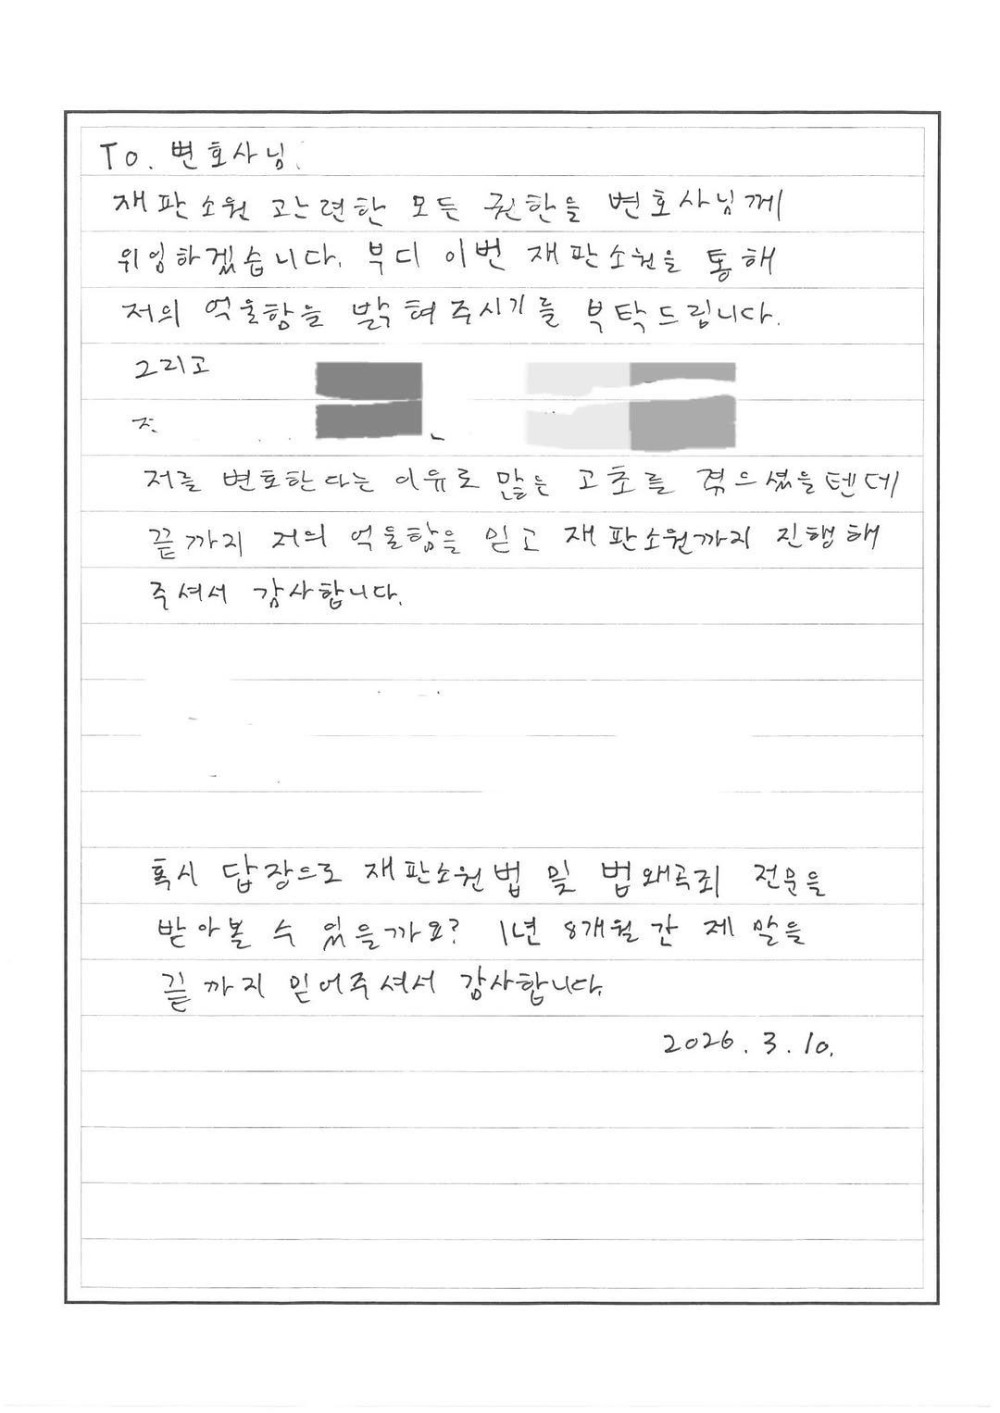 To. 변호사님.
재판소원 관련한 모든 권한을 변호사님께
위임하겠습니다. 부디 이번 재판소원을 통해
저의 억울함을 밝혀주시기를 부탁드립니다.
그리고
저를 변호한다는 이유로 많은 고초를 겪으셨을텐데
끝까지 저의 억울함을 믿고 재판소원까지 진행해
주셔서 감사합니다.
혹시 답장으로 재판소원법 및 법왜곡죄 전문을
받아볼 수 있을까요? 1년 8개월간 제 말을
끝까지 믿어주셔서 감사합니다.
2026. 3. 10.